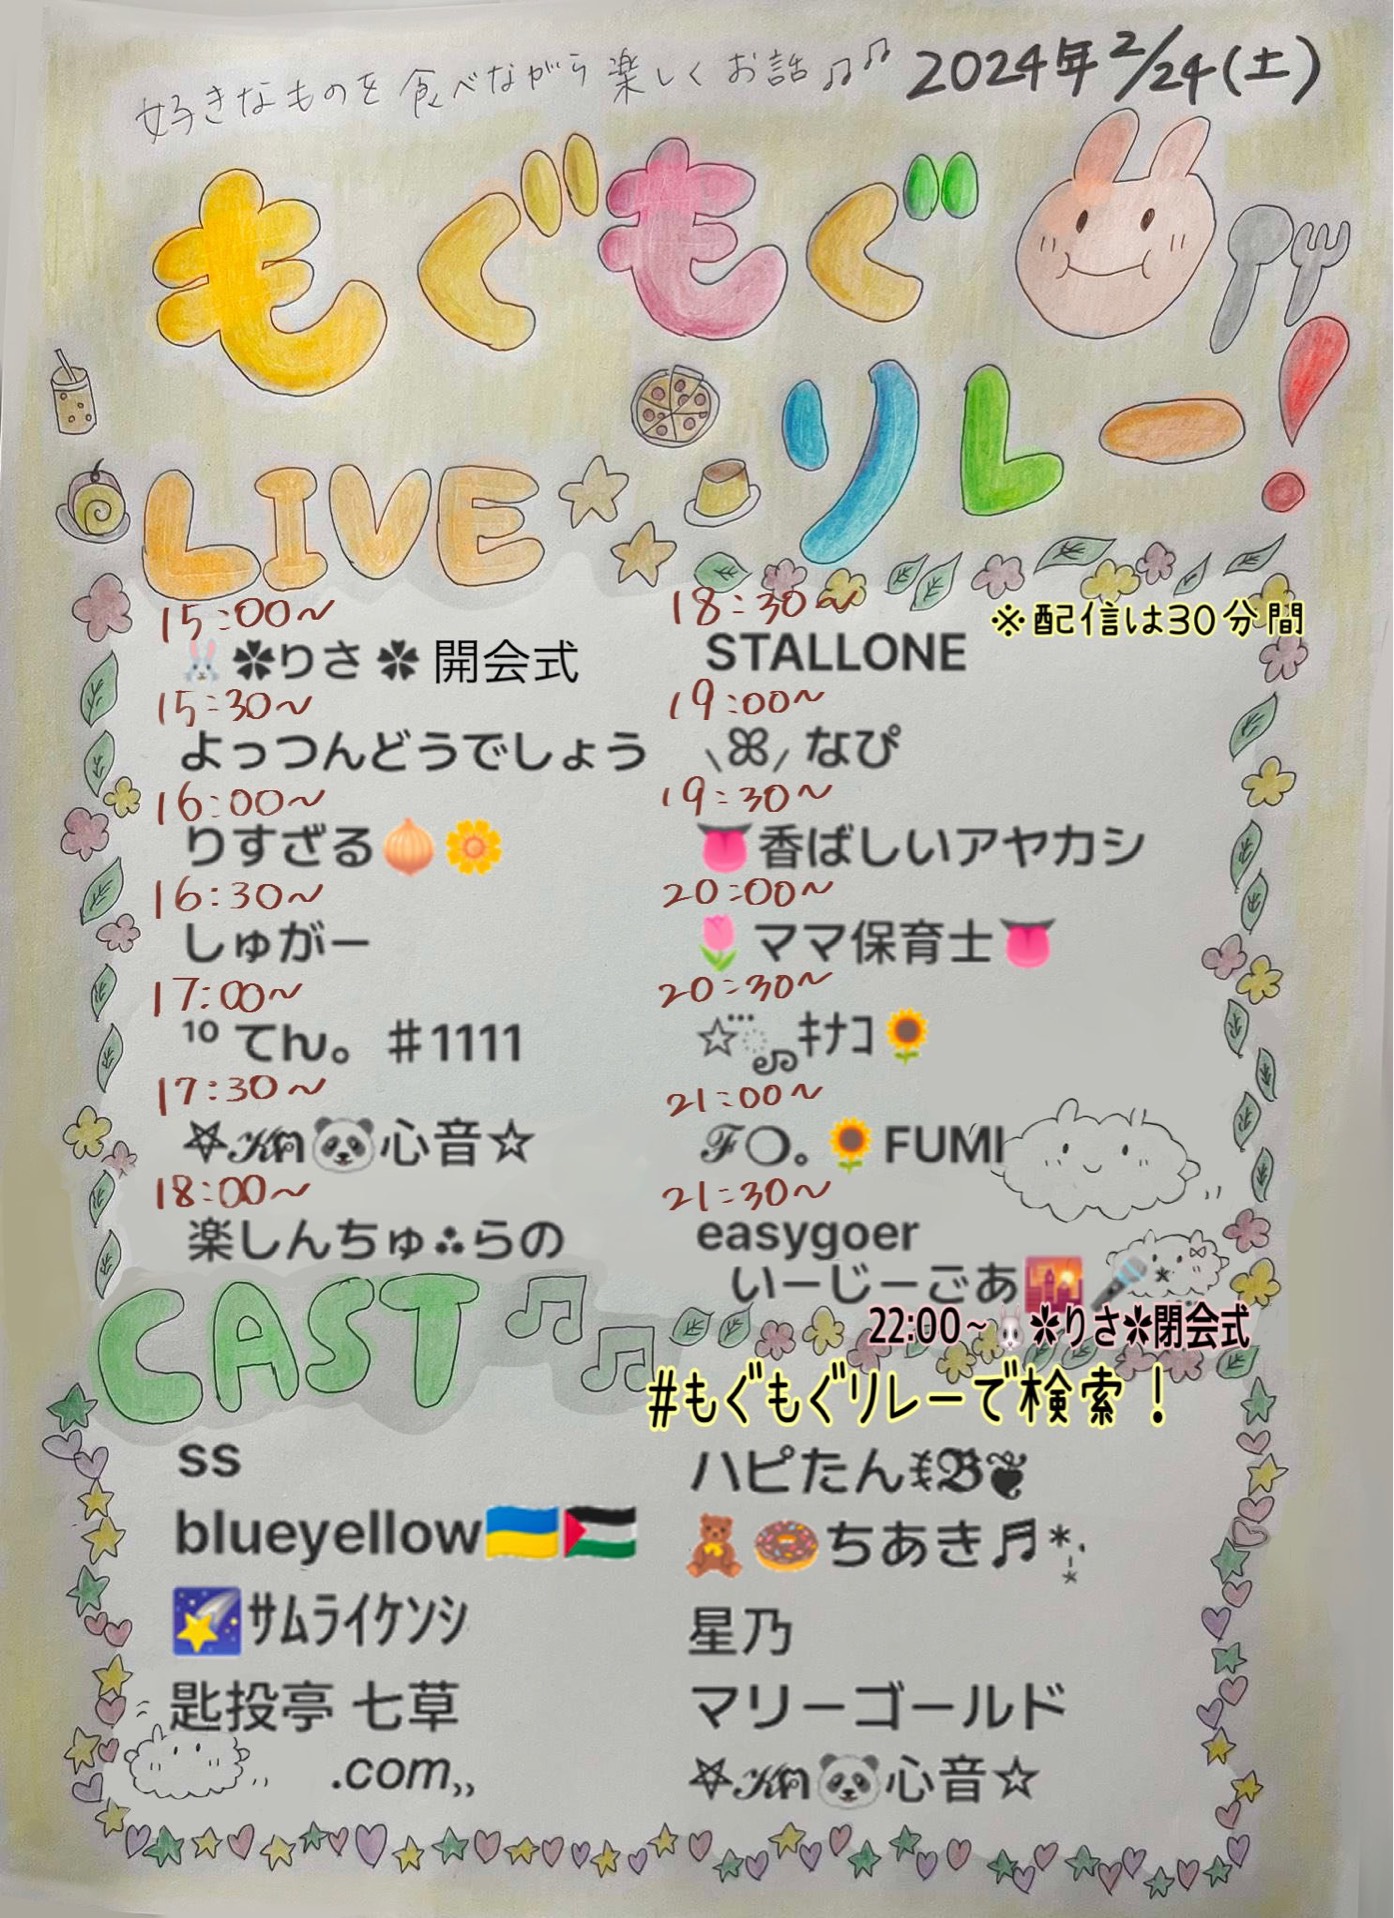 好きなものを食べながら楽しくお話♫♫ 2024年2/24(土)
もぐもぐ
リレー!
LIVE
※配信は30分間
15:00~
🐰✽りさ✽ 開会式
15:30~
よっつんどうでしょう
16:00~
りすざる🧅🌼
16:30~
しゅがー
17:00~
¹⁰ てん。#1111
17:30~
⛧𝒦ฅ🐼心音☆
18:00~
楽しんちゅ⁂らの
18:30~
STALLONE
19:00~
⸜ꕤ⸝ なぴ
19:30~
👅香ばしいアヤカシ
20:00~
🌷ママ保育士👅
20:30~
ｷﾅｺ🌻
21:00~
ℱ❍。🌻FUMI
21:30~
easygoer
いーじーごあ🌇🎤*
22:00~🐰✽りさ✽閉会式
CAST
#もぐもぐリレーで検索!
ss
blueyellow🇺🇦🇵🇸
🌠ｻﾑﾗｲｹﾝｼ
匙投亭 七草
.com,,
ハピたん𝕭❦
🧸🍩ちあき♬*
星乃
マリーゴールド
⛧𝒦ฅ🐼心音☆